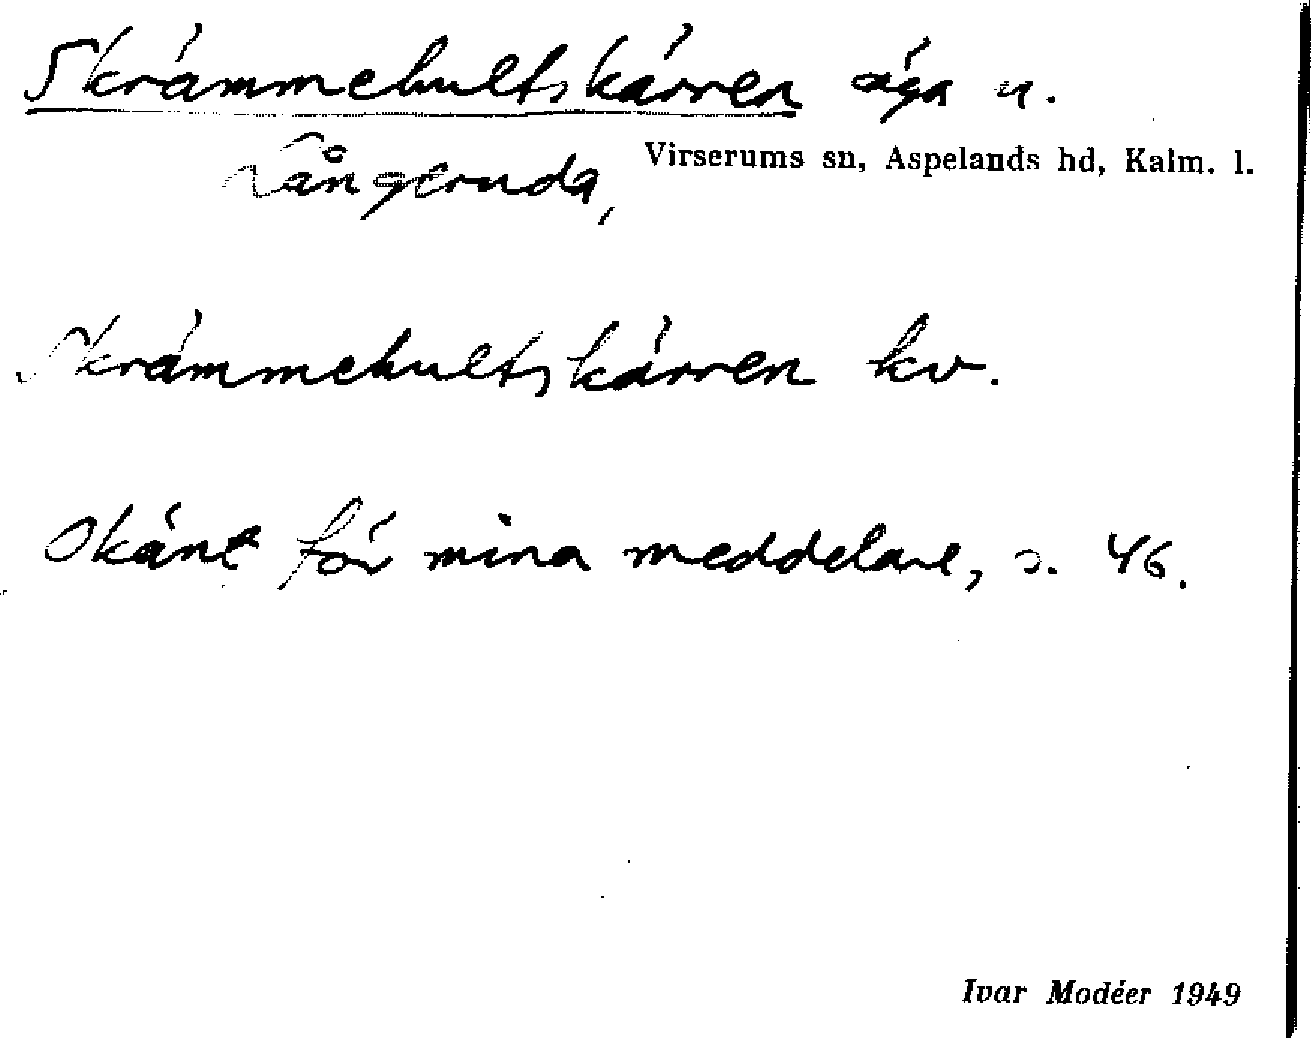 Skrämmehultskärren äga u.
Långeruda,
Virserums sn, Aspelands hd, Kalm. l.
Skrämmehultskärren kv.
Okänt för mina meddelare, s. 46.
Ivar Modéer 1949